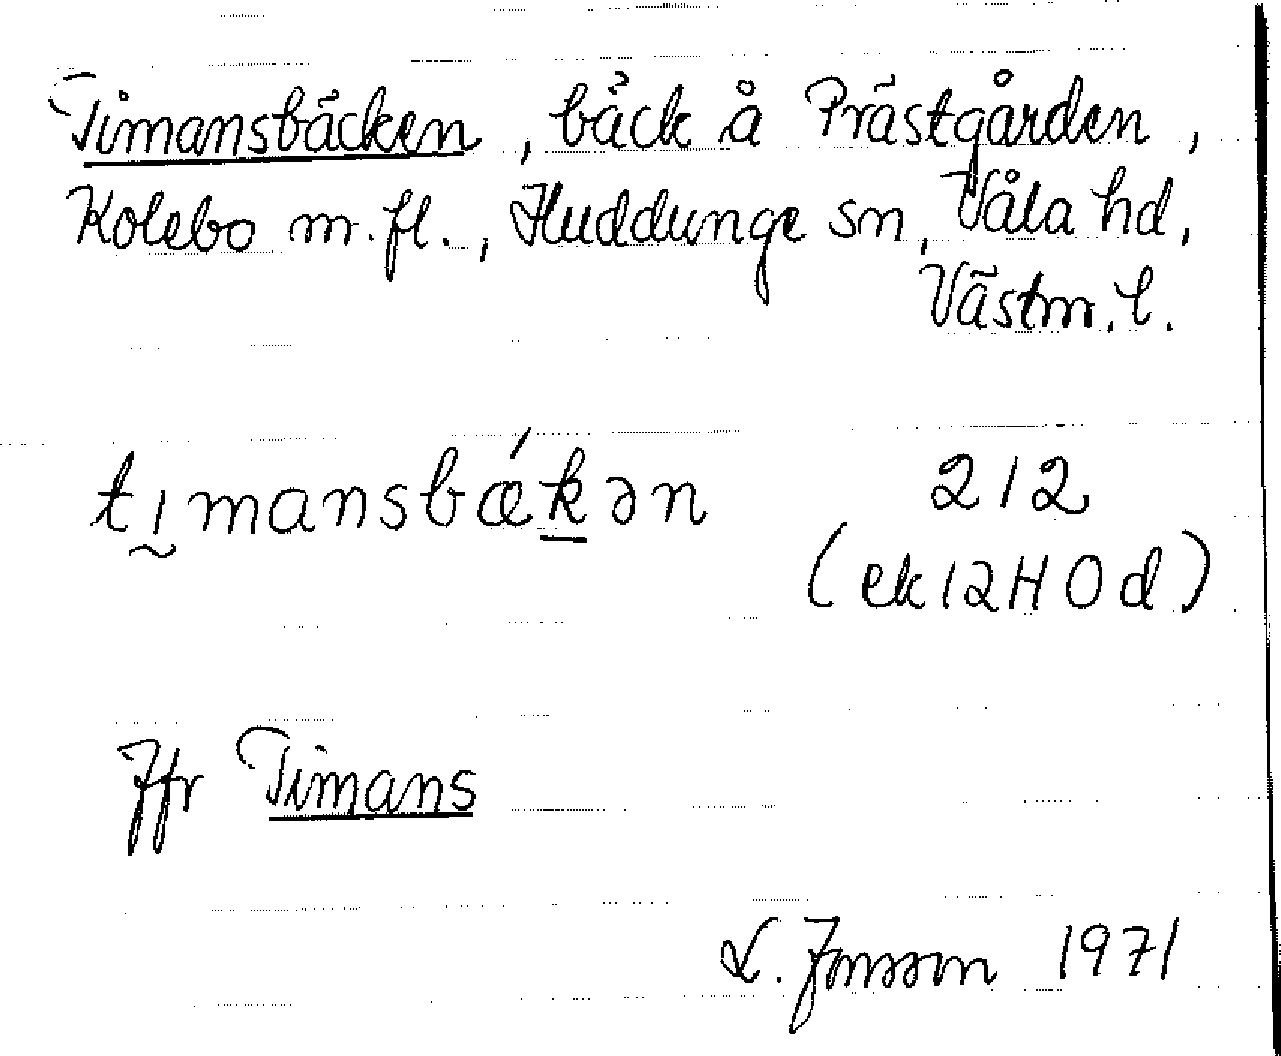 Timansbäcken, bäck å Prästgården,
Kolebo m.fl., Huddunge sn, Våla hd,
Västm. l.
tı̰mansbǽk̲ən 212
(ek 12H 0d)
Jfr Timans
L. Jonsson 1971